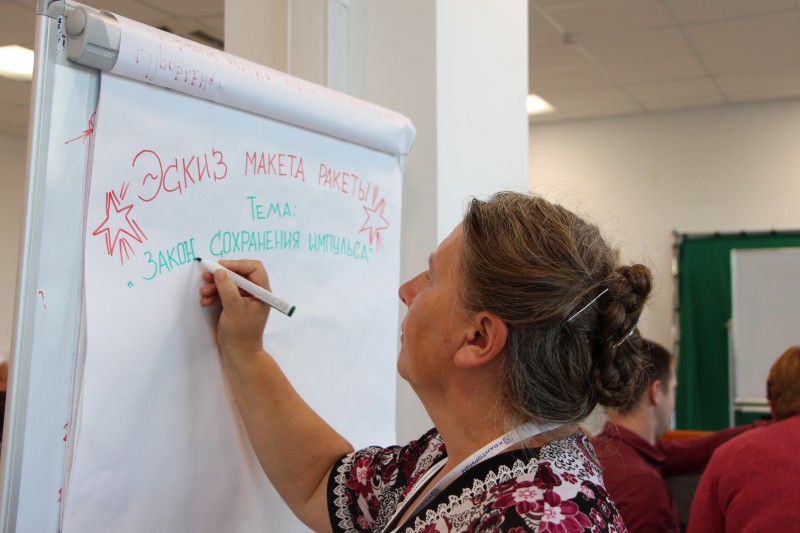 Эскиз макета ракеты
Тема:
"Закон сохранения импульса"